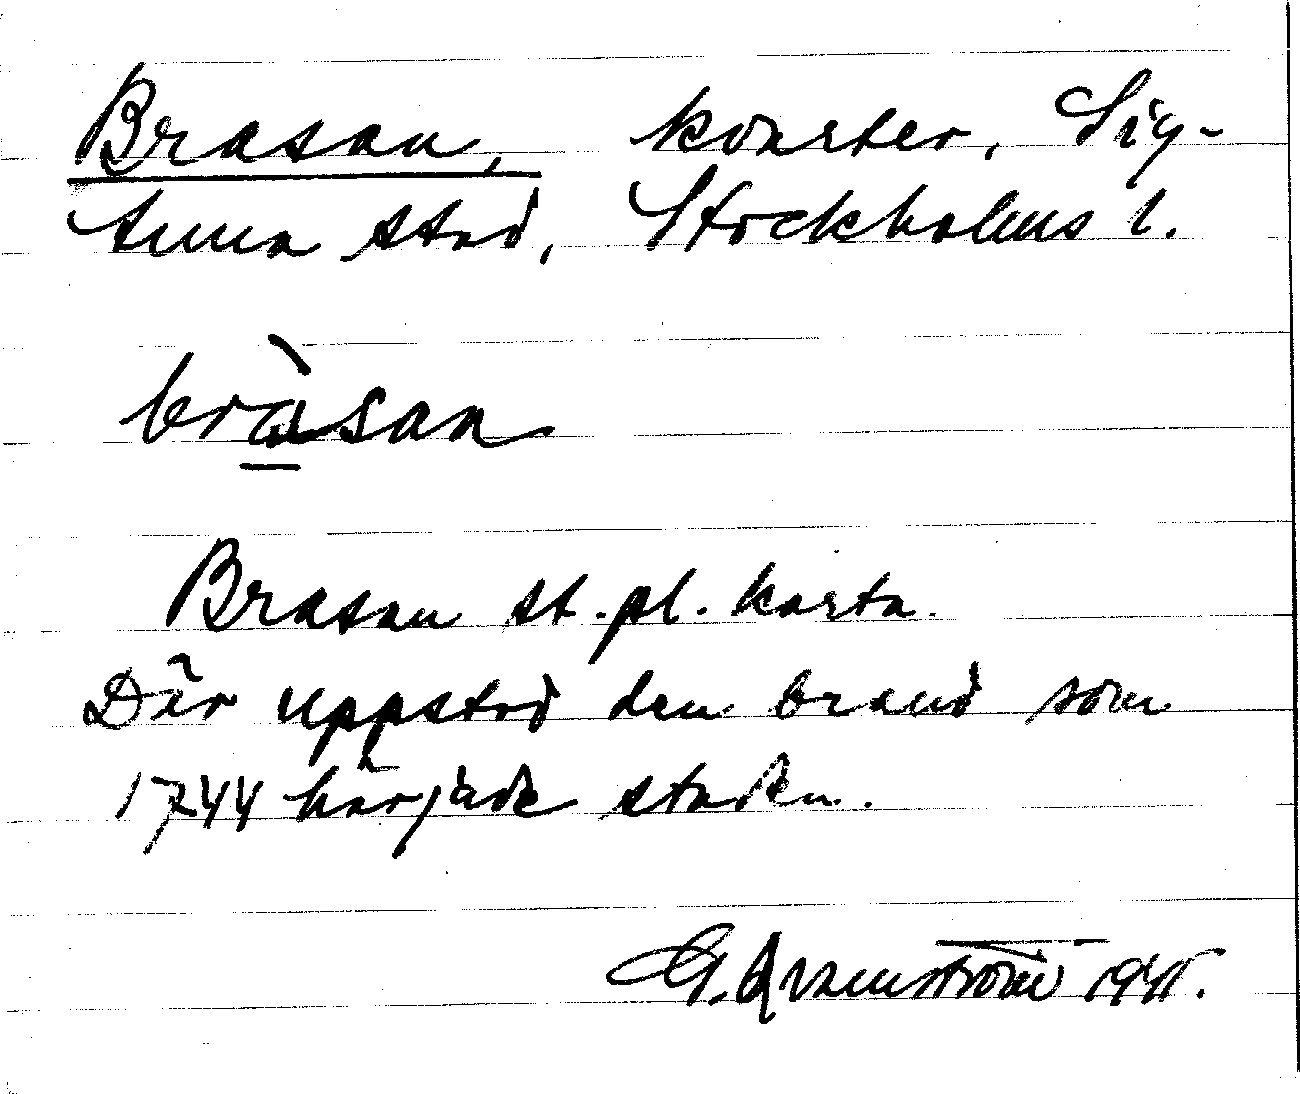 Brasan, kvarter, Sig-
tuna stad, Stockholms l.
bràsan
Brasan st.pl. karta.
Där uppstod den brand som
1744 härjade staden.
G. Qvarnström 1941.